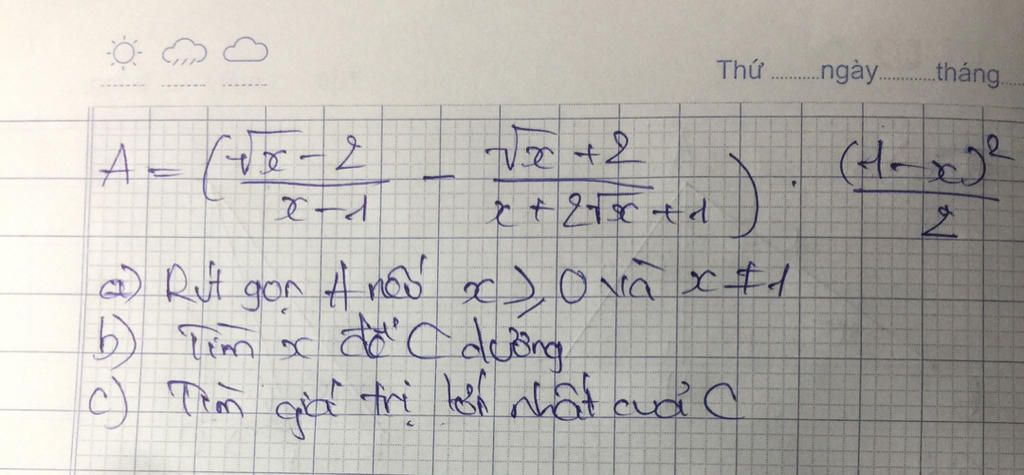 Thứ ..........ngày..........tháng....
A = (\frac{\sqrt{x} - 2}{x - 1} - \frac{\sqrt{x} + 2}{x + 2\sqrt{x} + 1}) . \frac{(1 - x)^2}{2}
a) Rút gọn A nếu x ≥ 0 và x ≠ 1
b) Tìm x để C dương
c) Tìm giá trị lớn nhất của C